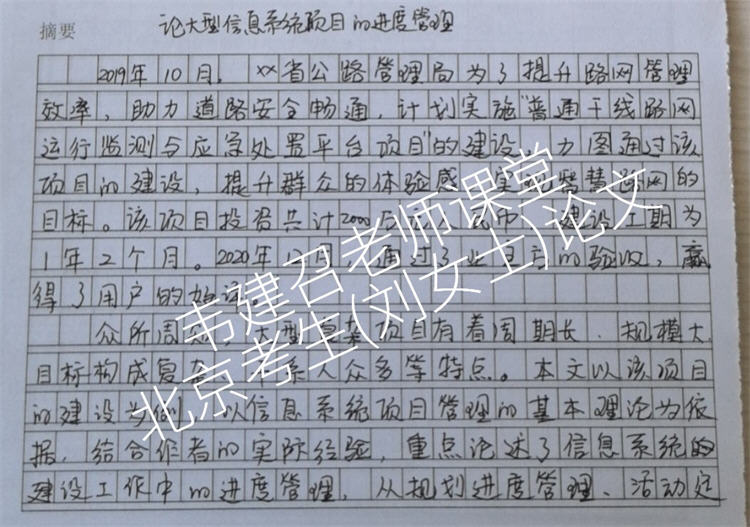 摘要
论大型信息系统项目的进度管理
2019年10月,××省公路管理局为了提升路网管理
效率,助力道路安全畅通,计划实施"普通干线路网
运行监测与应急处置平台项目"的建设,力图通过该
项目的建设,提升群众的体验感,实现智慧路网的
目标。该项目投
共计2000
建设工期为
1年2个月。2020年12月,通过了业主
的验收,赢
得了用户的
众所周
大型复杂项目有着周期长、规模大
目标构成复杂
人众多等特点。本文以该项目
的建设为例,以信息系统项目管理的基本理论为依
据,结合作者的实际经验,重点论述了信息系统的
建设工作中的进度管理,从规划进度管理、活动定
韦建召老师课堂
北京考生(刘女士)论文